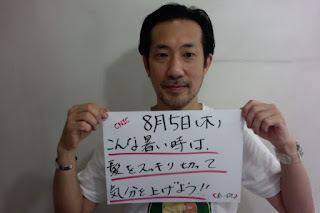 8月5日(木)
こんな暑い時は、
髪をスッキリ切って
気分を上げよう!!